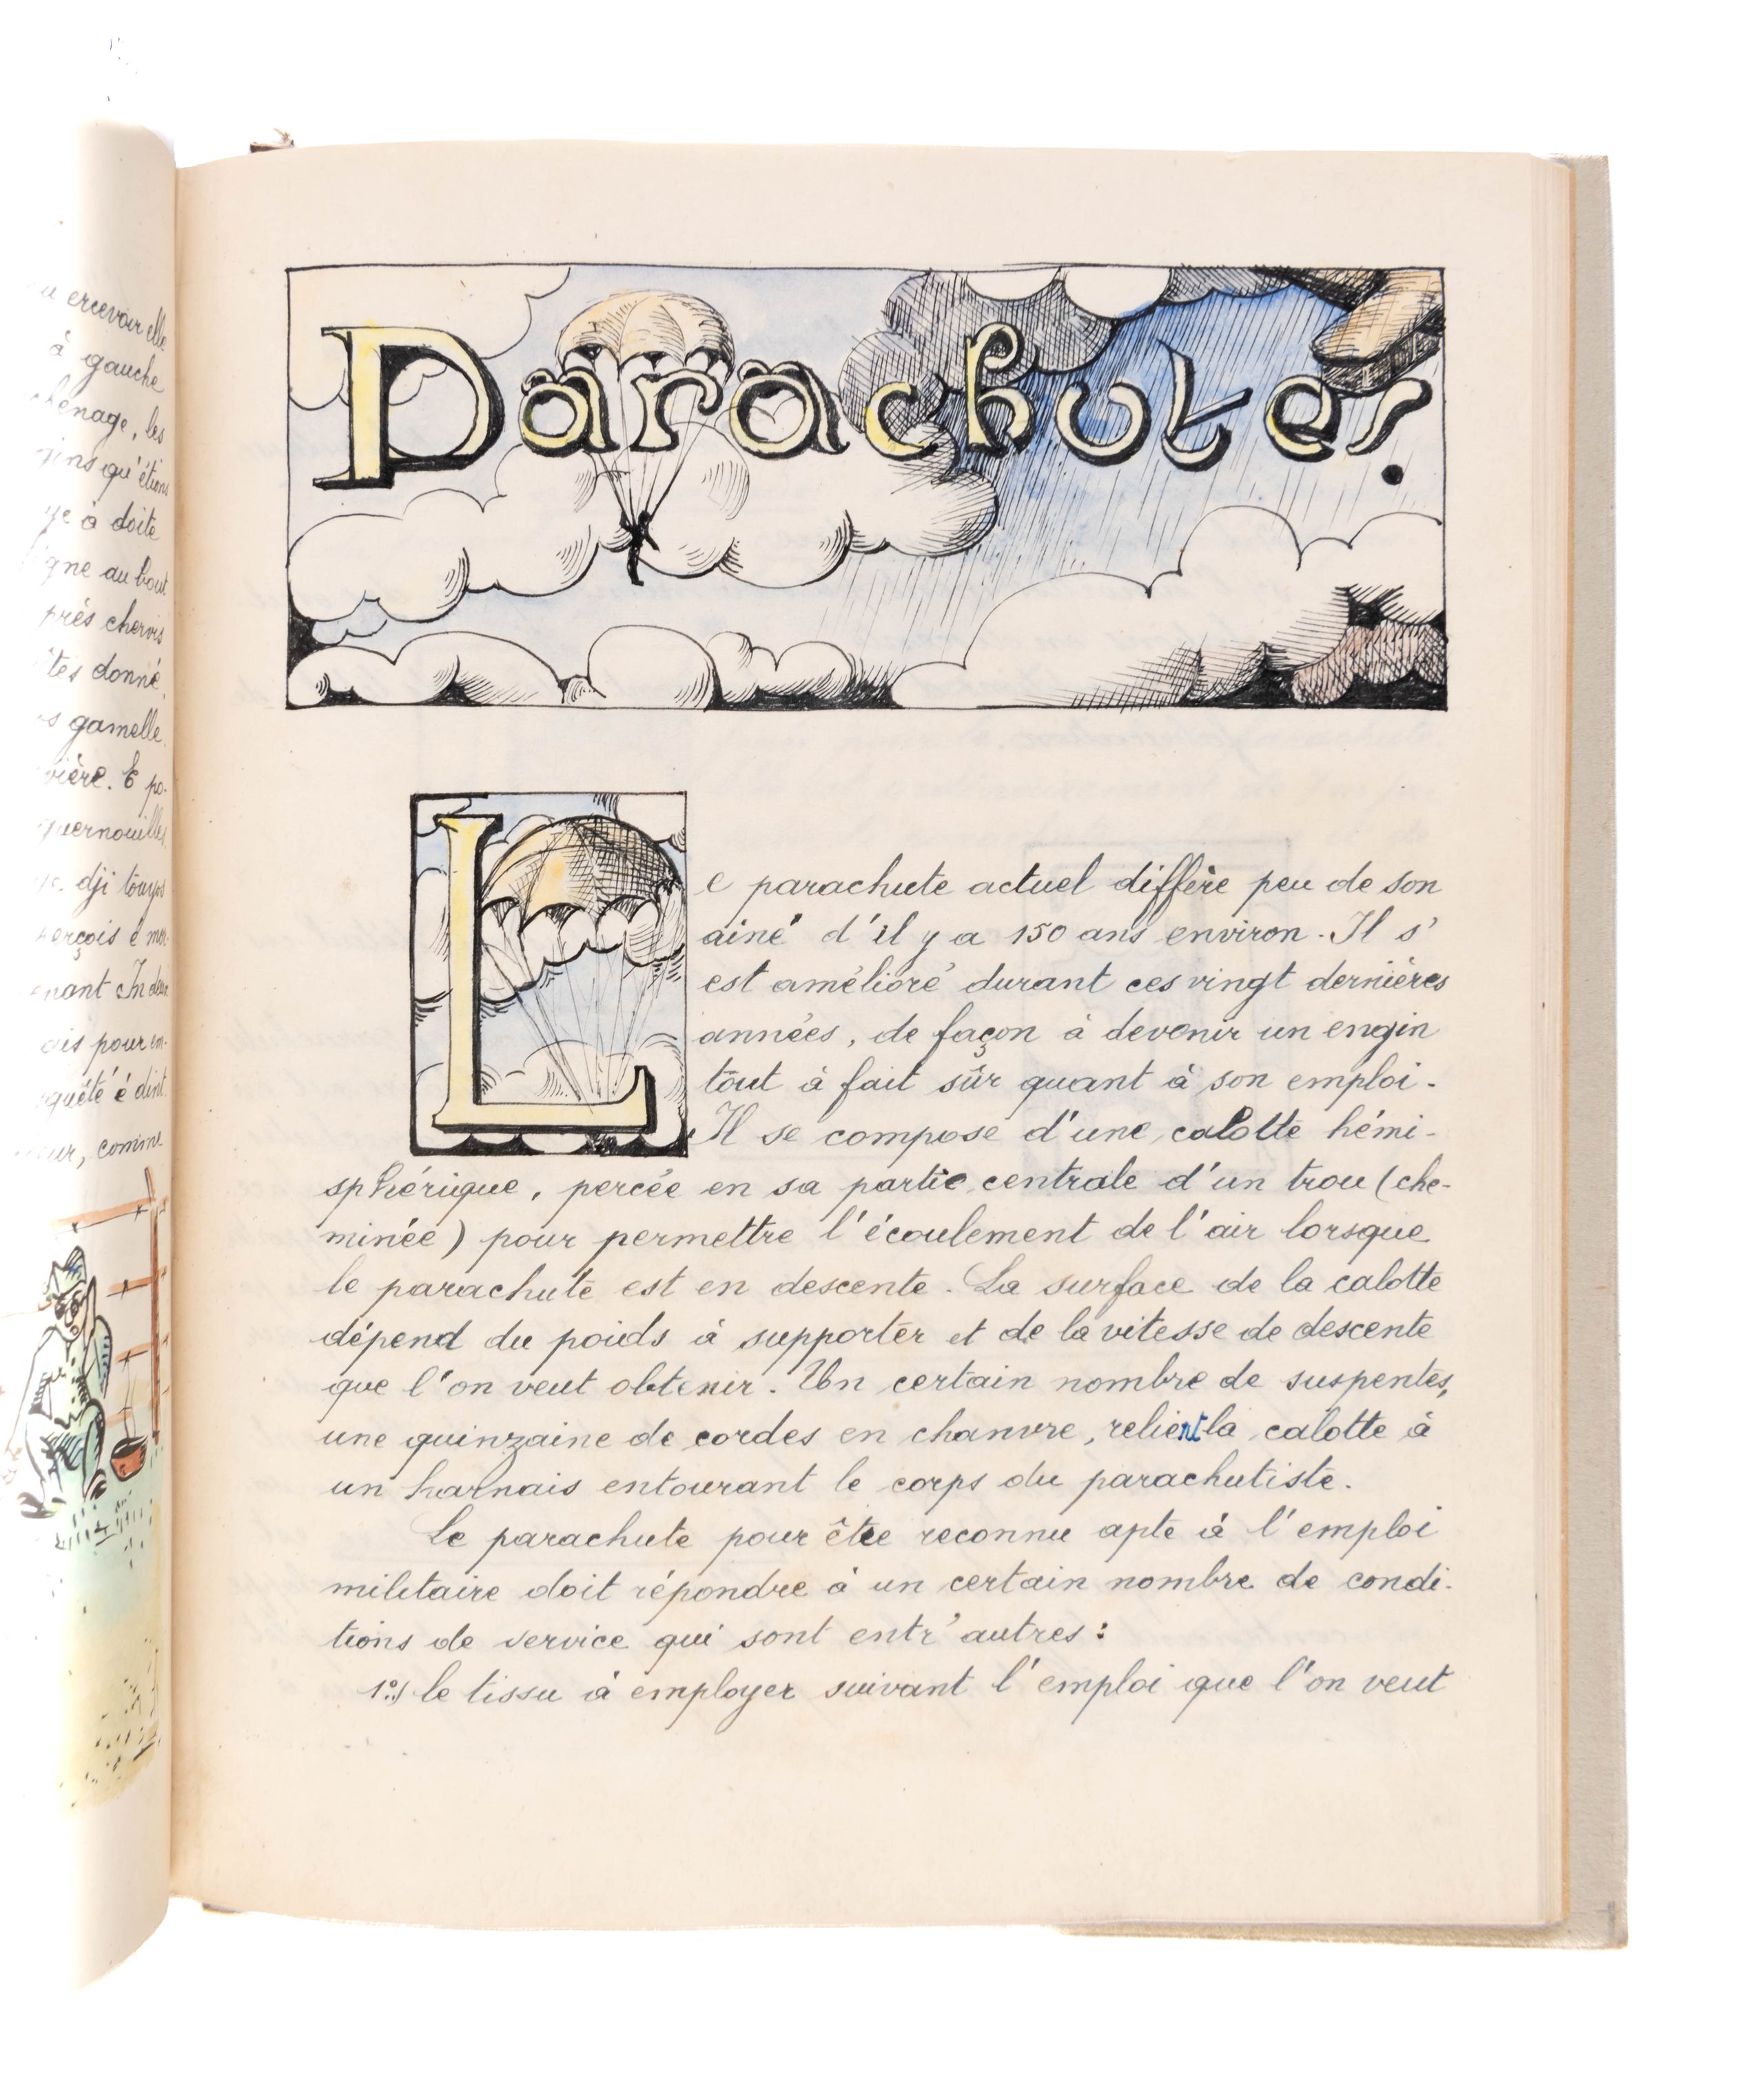 ercevoir elle
à gauche
les
qu'étions
à doite
au bout
près chervis
donné
gamelle
E po-
dji
è
In
pour en-
è dint
, comme
Parachute!
Le parachute actuel diffère peu de son
ainé d'il y a 150 ans environ. Il s'
est amélioré durant ces vingt dernières
années, de façon à devenir un engin
tout à fait sûr quant à son emploi.
Il se compose d'une calotte hémi-
sphérique, percée en sa partie centrale d'un trou (che-
minée) pour permettre l'écoulement de l'air lorsque
le parachute est en descente. La surface de la calotte
dépend du poids à supporter et de la vitesse de descente
que l'on veut obtenir. Un certain nombre de suspentes,
une quinzaine de cordes en chanvre, relient la calotte à
un harnais entourant le corps du parachutiste.
Le parachute pour être reconnu apte à l'emploi
militaire doit répondre à un certain nombre de condi-
tions de service qui sont entr'autres :
1º) le tissu à employer suivant l'emploi que l'on veut